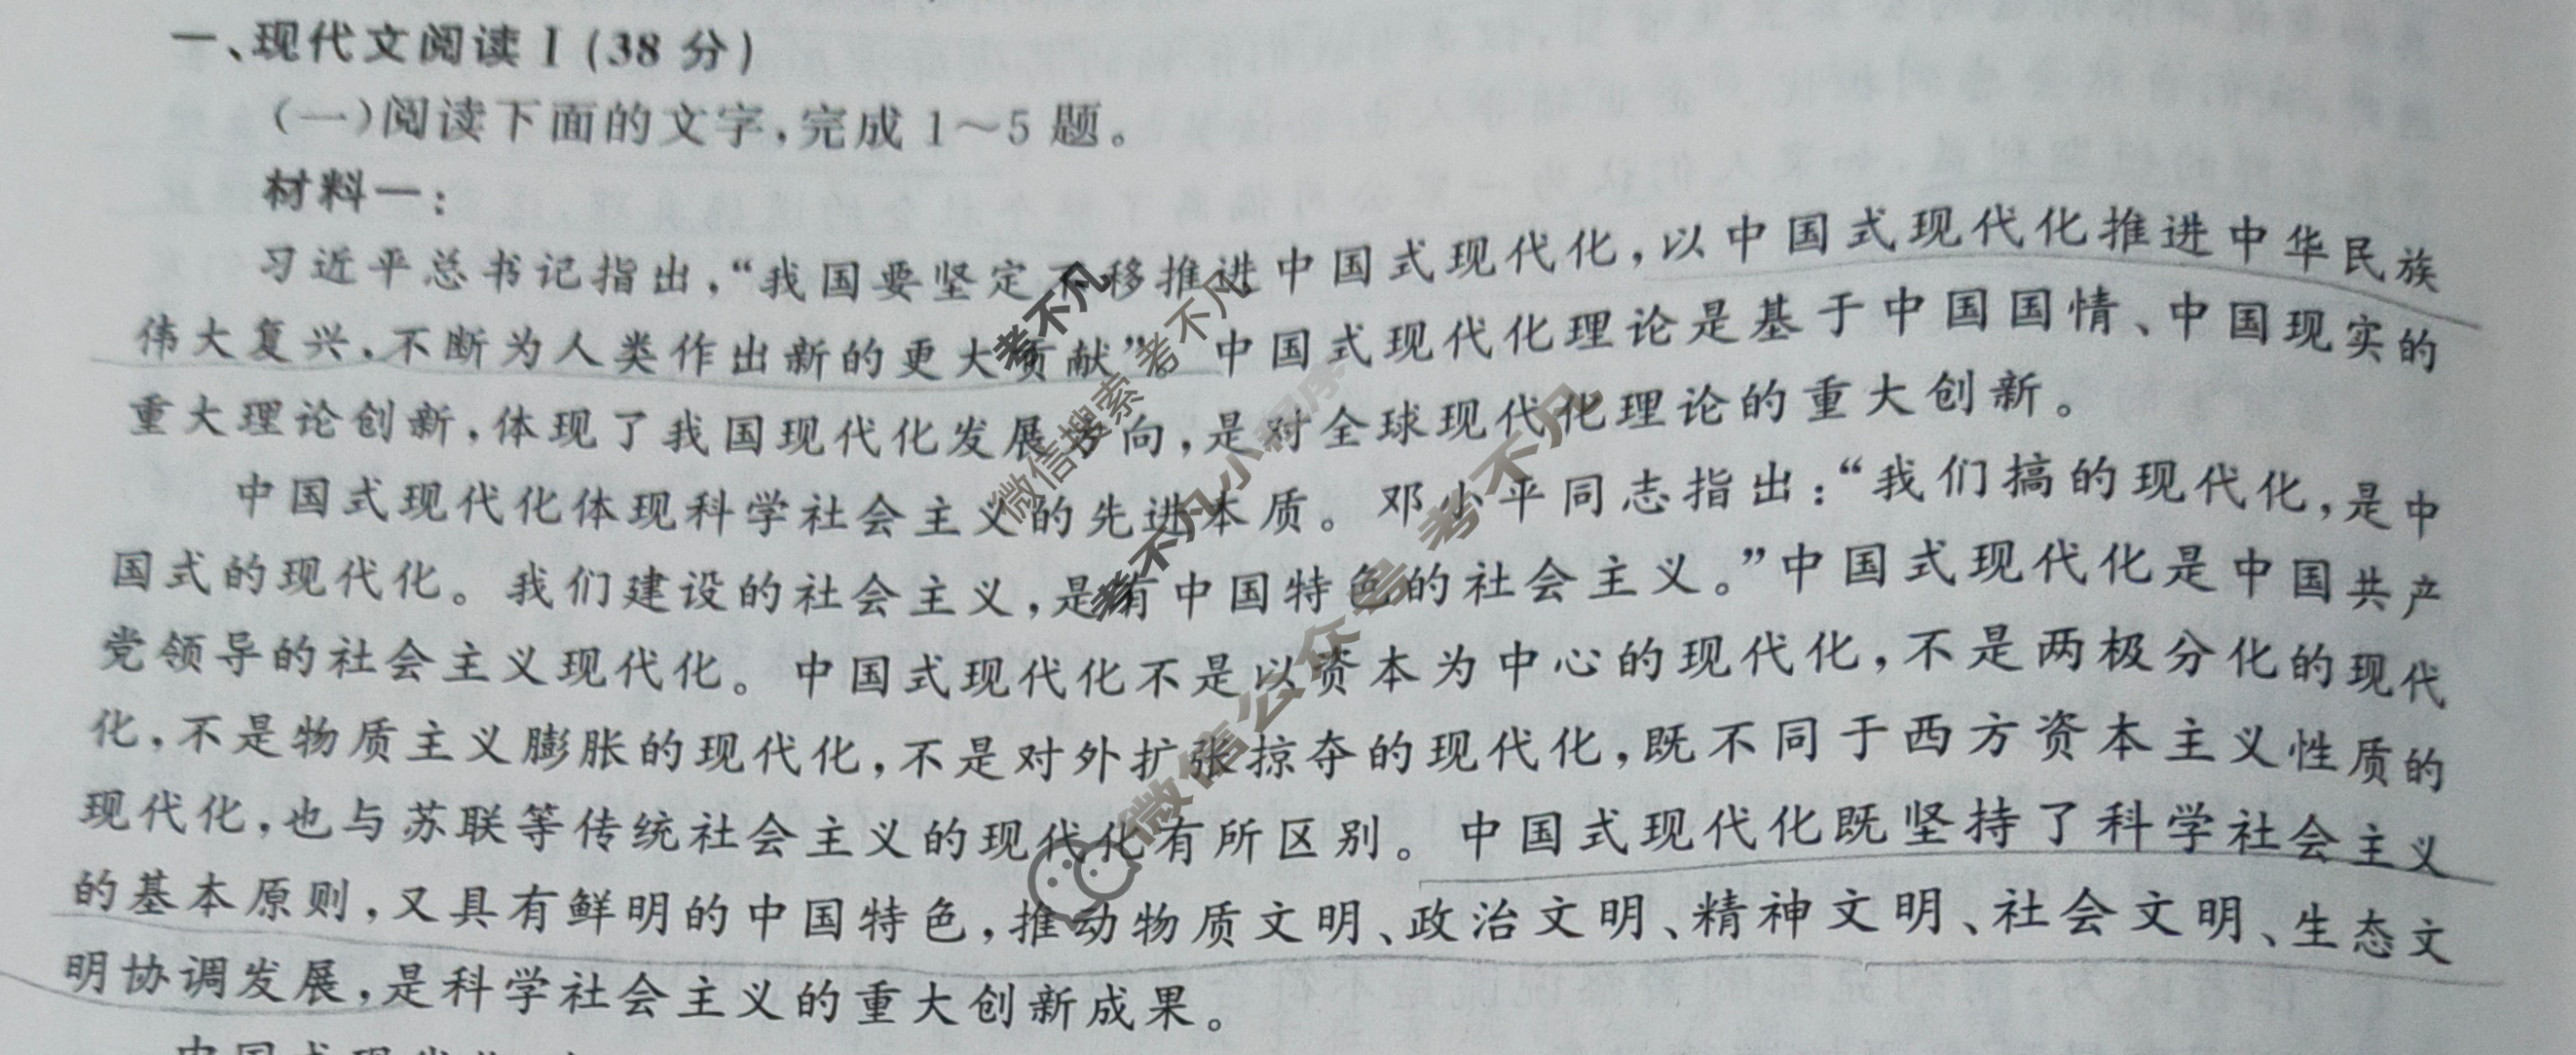 一、现代文阅读 I (38 分)
(一)阅读下面的文字,完成 1～5 题。
材料一:
习近平总书记指出,“我国要坚定不移推进中国式现代化,以中国式现代化推进中华民族
伟大复兴,不断为人类作出新的更大贡献”。中国式现代化理论是基于中国国情、中国现实的
重大理论创新,体现了我国现代化发展方向,是对全球现代化理论的重大创新。
中国式现代化体现科学社会主义的先进本质。邓小平同志指出:“我们搞的现代化,是中
国式的现代化。我们建设的社会主义,是有中国特色的社会主义。”中国式现代化是中国共产
党领导的社会主义现代化。中国式现代化不是以资本为中心的现代化,不是两极分化的现代
化,不是物质主义膨胀的现代化,不是对外扩张掠夺的现代化,既不同于西方资本主义性质的
现代化,也与苏联等传统社会主义的现代化有所区别。中国式现代化既坚持了科学社会主义
的基本原则,又具有鲜明的中国特色,推动物质文明、政治文明、精神文明、社会文明、生态文
明协调发展,是科学社会主义的重大创新成果。
考不凡
微信搜索 考不凡
考不凡小程序
微信公众号 考不凡